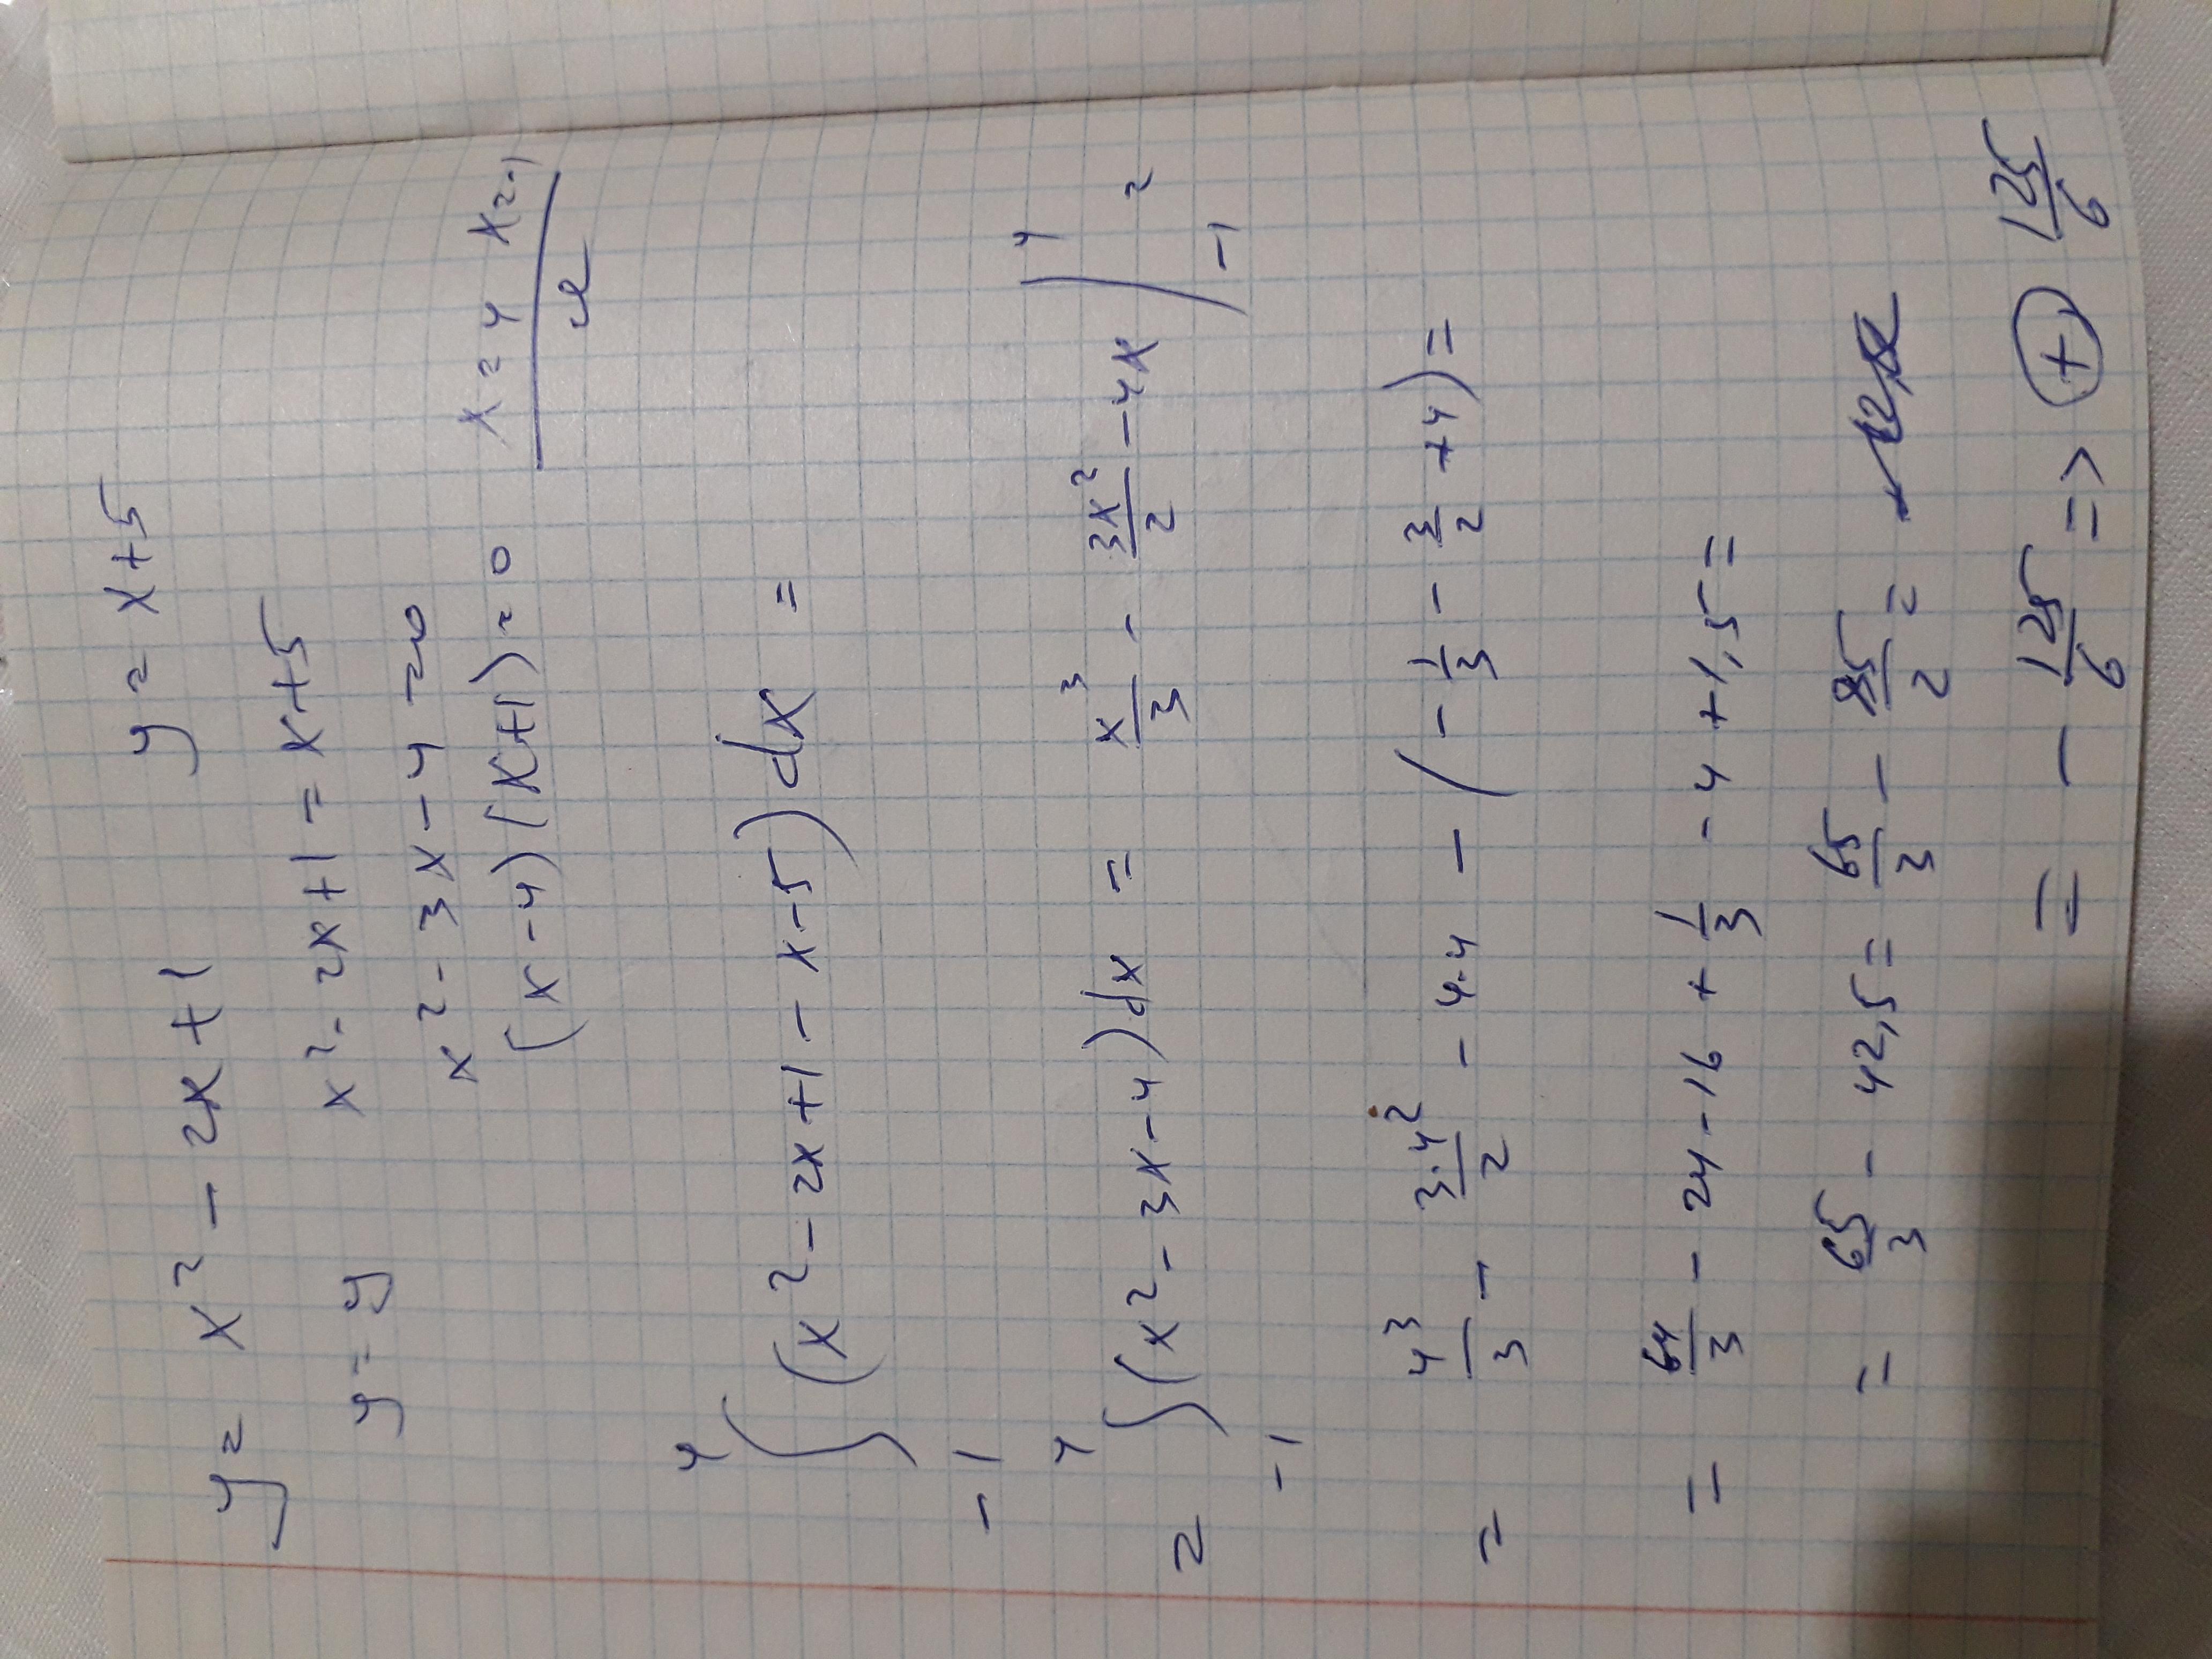 y = x² - 2x + 1 y = x + 5
y = y x² - 2x + 1 = x + 5
x² - 3x - 4 = 0
(x - 4)(x + 1) = 0 x = 4 x = -1
и
∫₋₁⁴ (x² - 2x + 1 - x - 5) dx =
= ∫₋₁⁴ (x² - 3x - 4) dx = x³/3 - 3x²/2 - 4x |₋₁⁴ =
= 4³/3 - 3·4²/2 - 4·4 - (-1/3 - 3/2 + 4) =
= 64/3 - 24 - 16 + 1/3 - 4 + 1,5 =
= 65/3 - 42,5 = 65/3 - 85/2 =
= - 125/6 => (+) 125/6